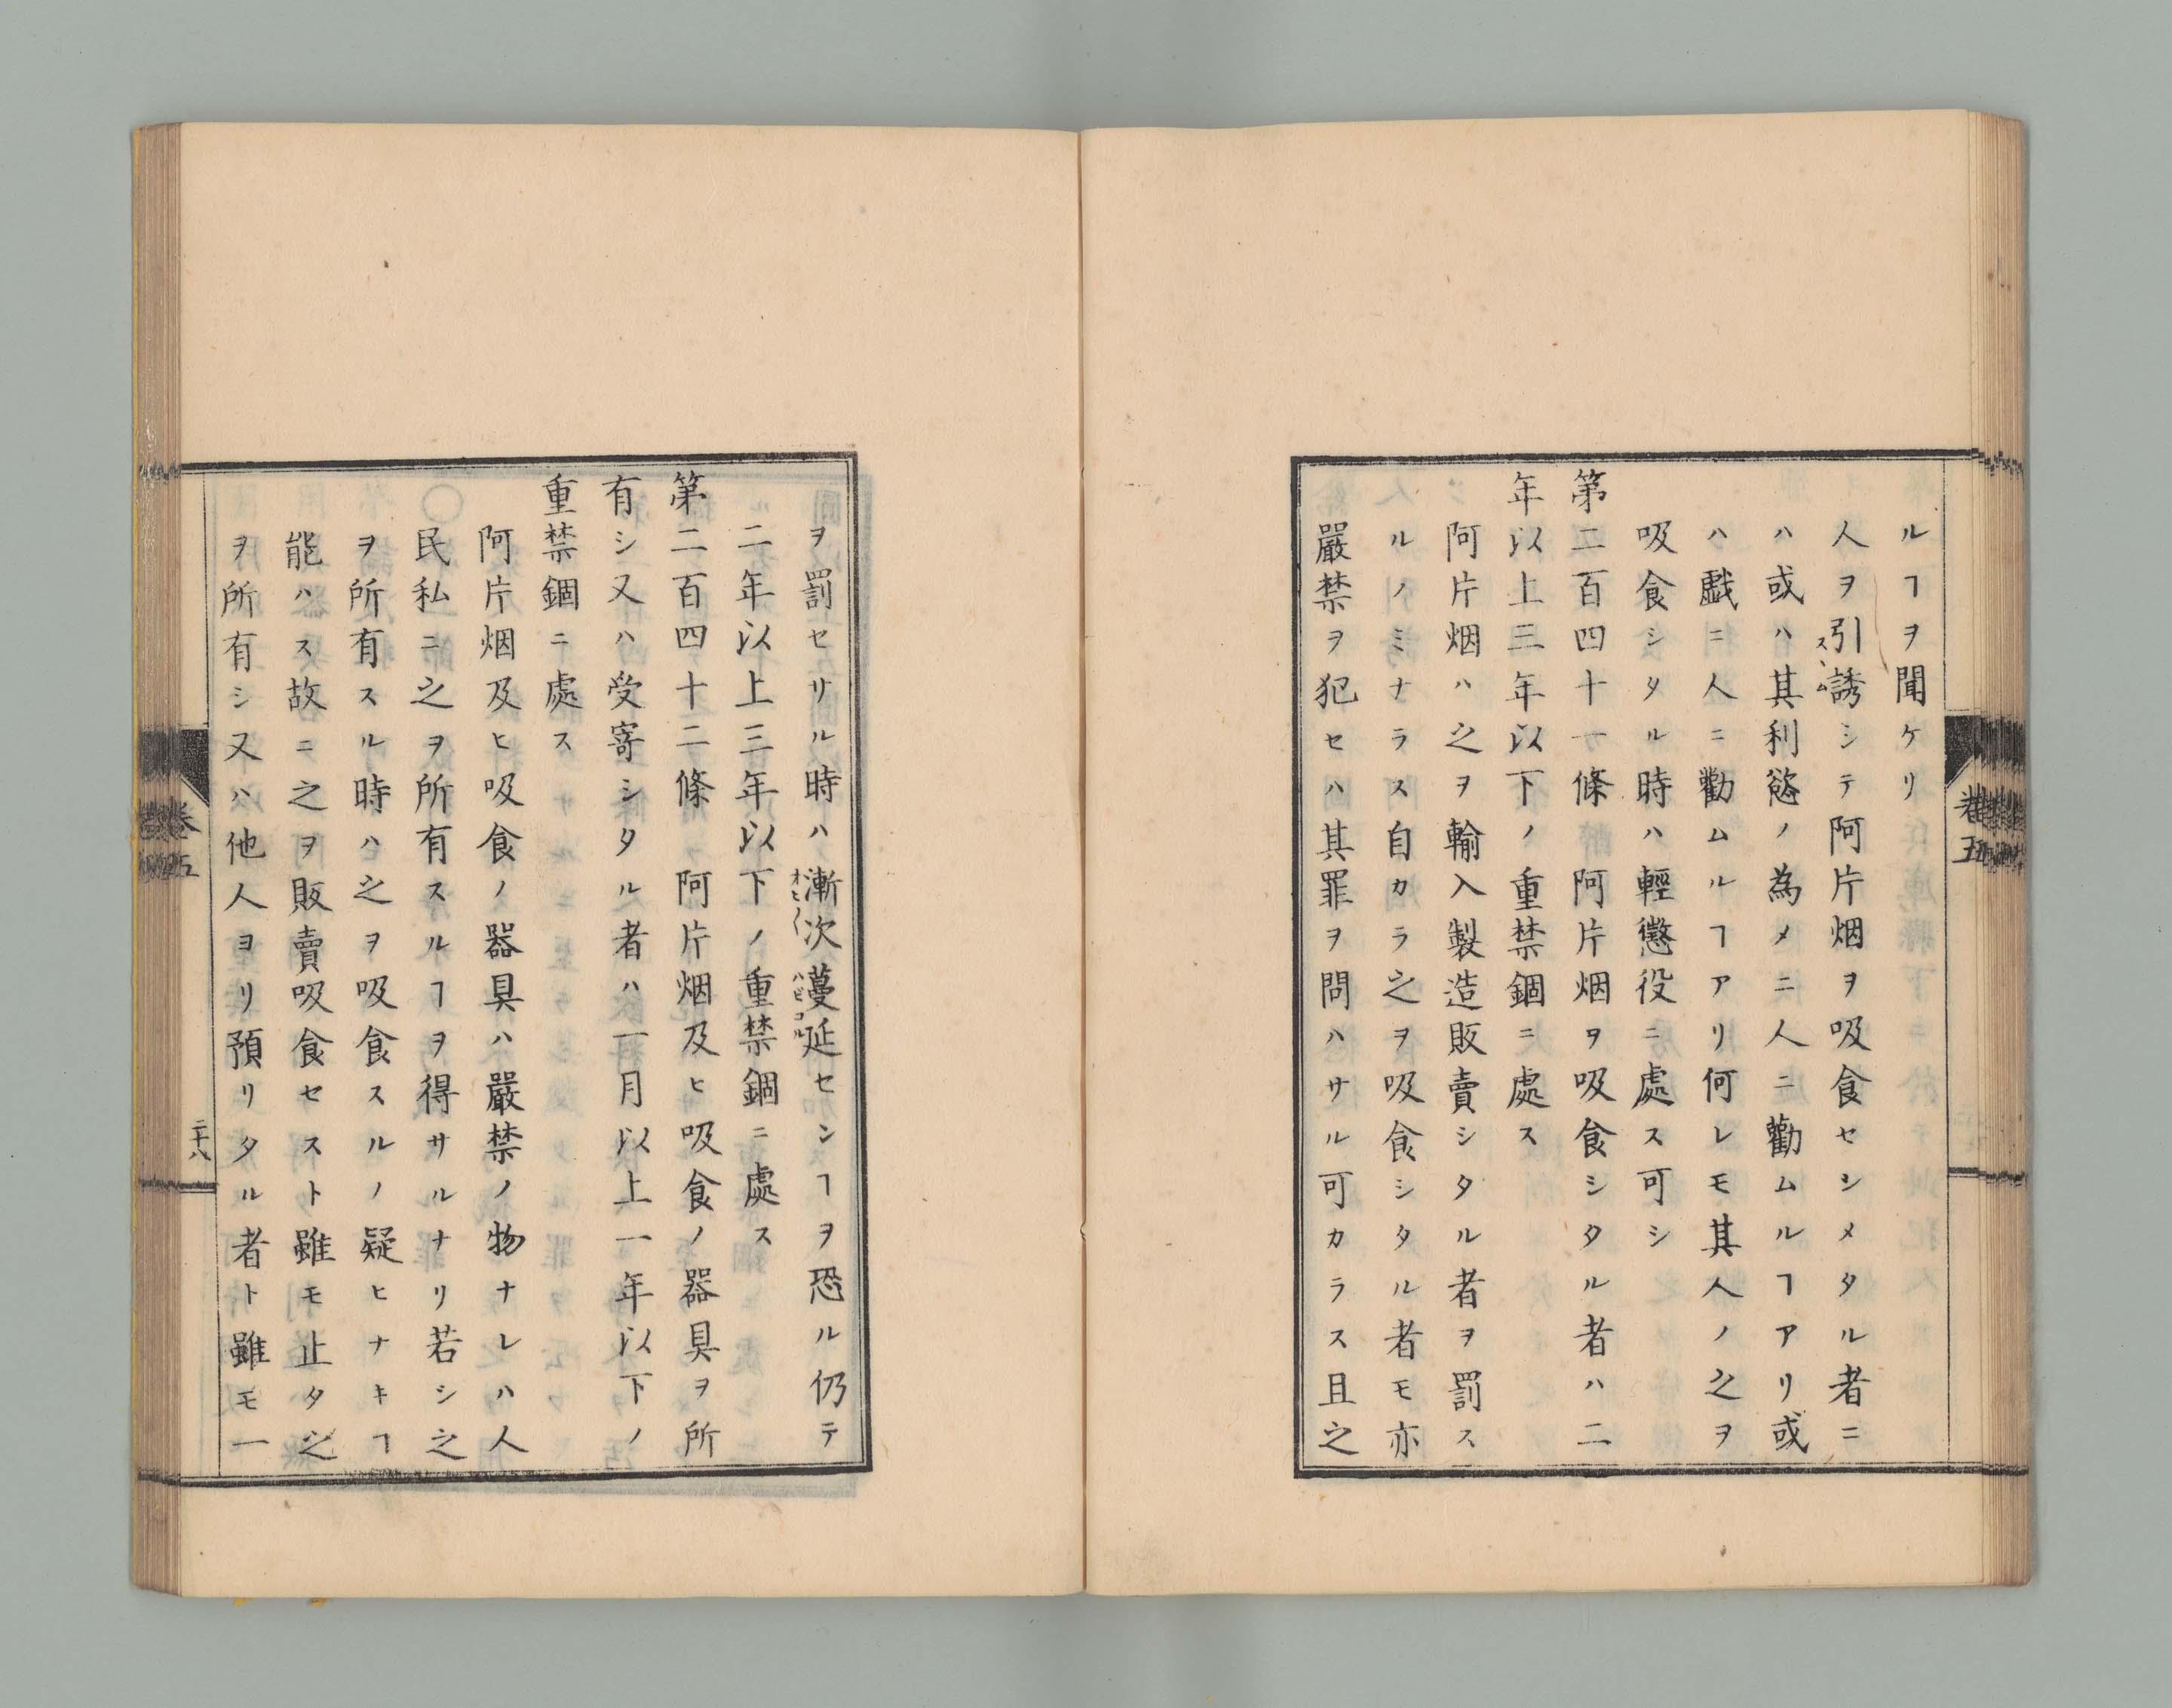 ルヿヲ聞ケリ
人ヲ引誘シテ阿片烟ヲ吸食セシメタル者ニ
ハ或ハ其利慾ノ為メニ人ニ勸ムルヿアリ或
ハ戯ニ人ニ勸ムルヿアリ何レモ其人ノ之ヲ
吸食シタル時ハ輕懲役ニ處ス可シ
第二百四十一條 阿片烟ヲ吸食シタル者ハ二
年以上三年以下ノ重禁錮ニ處ス
阿片烟ハ之ヲ輸入製造販賣シタル者ヲ罰ス
ルノミナラス自カラ之ヲ吸食シタル者モ亦
嚴禁ヲ犯セハ其罪ヲ問ハサル可カラス且之
卷五
ヲ罰セサル時ハ漸次蔓延センヿヲ恐ル仍テ
二年以上三年以下ノ重禁錮ニ處ス
第二百四十二條 阿片烟及ヒ吸食ノ器具ヲ所
有シ又ハ受寄シタル者ハ一月以上一年以下ノ
重禁錮ニ處ス
阿片烟及ヒ吸食ノ器具ハ嚴禁ノ物ナレハ人
民私ニ之ヲ所有スルヿヲ得サルナリ若シ之
ヲ所有スル時ハ之ヲ吸食スルノ疑ヒナキヿ
能ハス故ニ之ヲ販賣吸食セスト雖モ止タ之
ヲ所有シ又ハ他人ヨリ預リタル者ト雖モ一
卷五
二十八